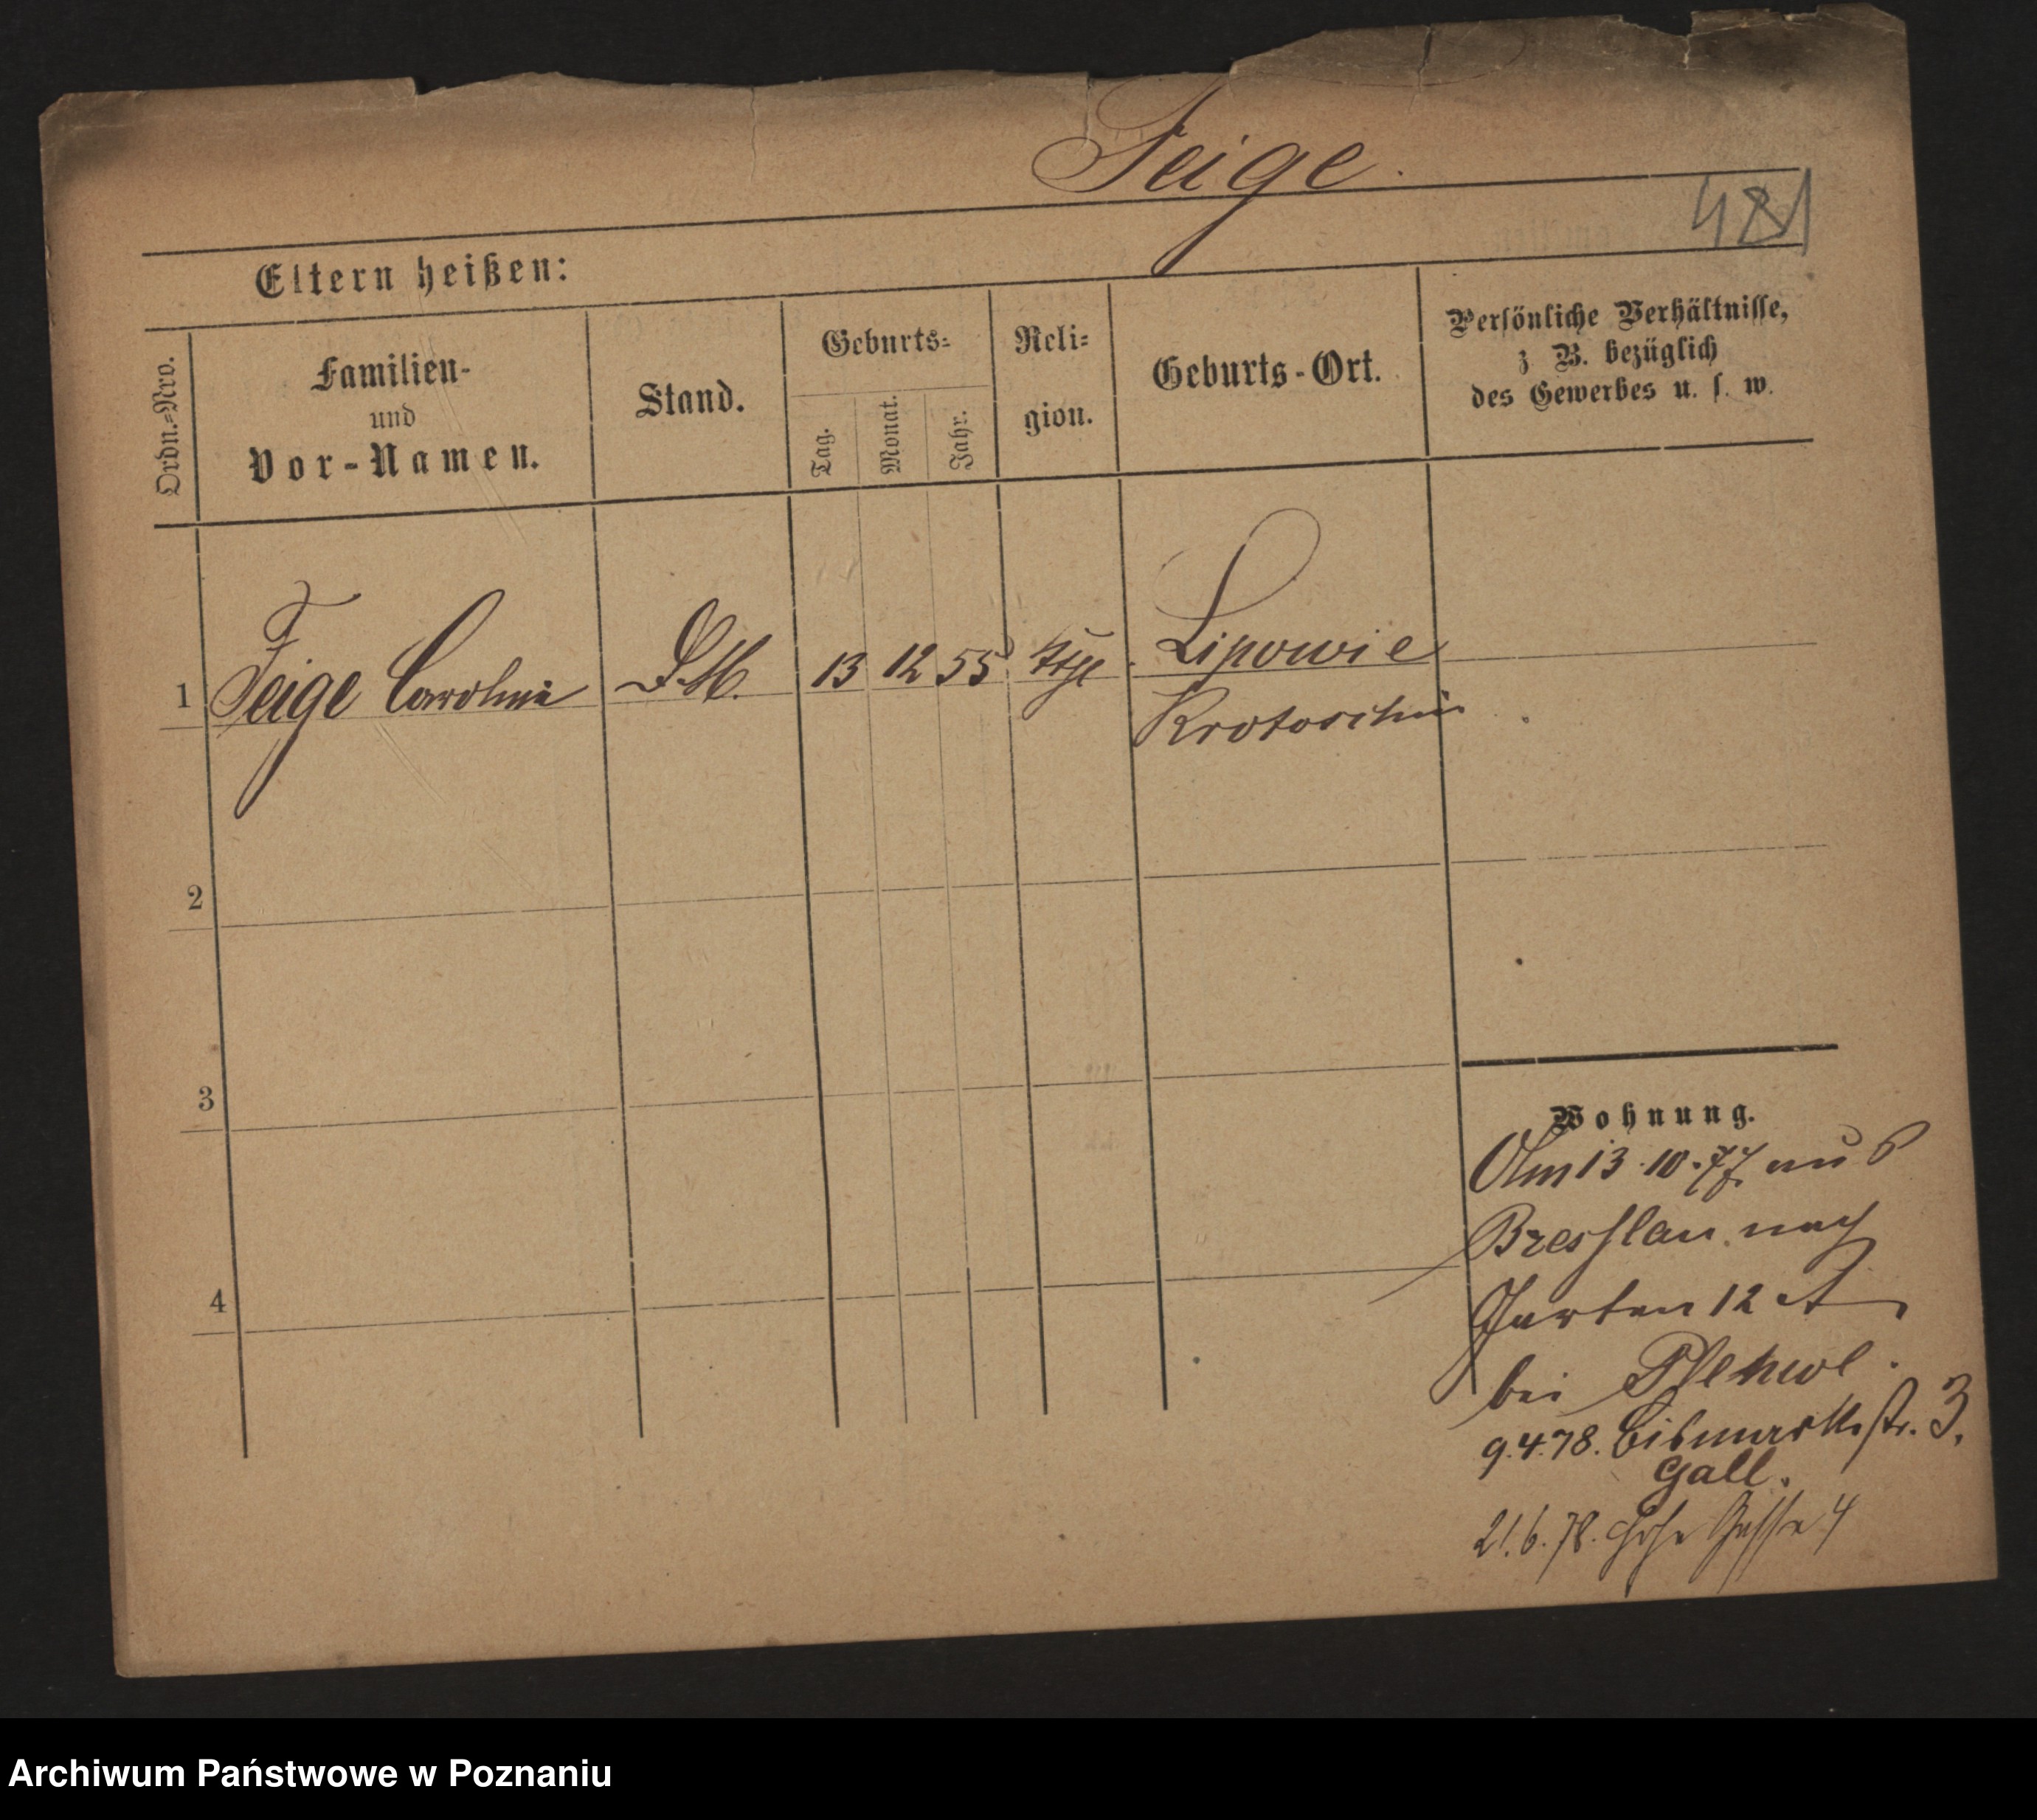 Feige.
481
Eltern heißen:
Ordn.-Nro.
Familien-
und
Vor-Namen.
Stand.
Geburts-
Tag.
Monat.
Jahr.
Reli-
gion.
Geburts-Ort.
Persönliche Verhältnisse,
z B. bezüglich
des Gewerbes u. s. w.
1 Feige Caroline D.M. 13 12 55 Lipowie
Krotoschin
2
3
4
Wohnung.
Am 13.10.77 aus
Bresslau nach
Garten 12 A
bei
9.4.78. Bismarkstr. 3.
Gall.
21.6.78. Hohe Gasse 4
Archiwum Państwowe w Poznaniu